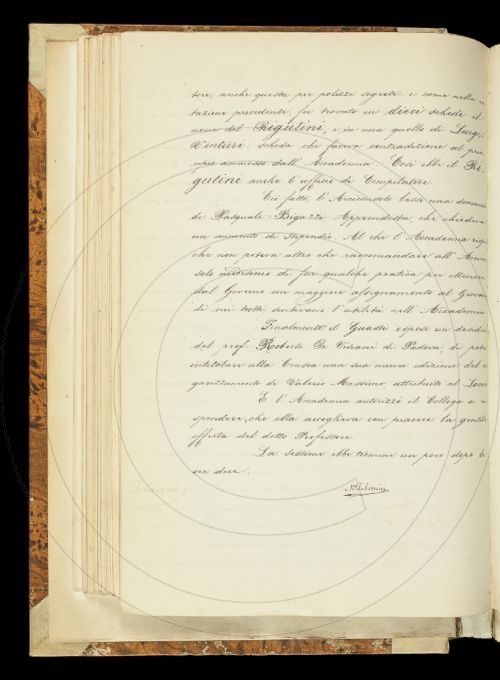 tore, anche questa per polizze segrete e come nella
tazione precedente fu trovato in dieci schede il
nome del Rigutini, e in una quello di Luigi
Venturi: scheda che faceva contradizione al prin
cipio ammesso dall'Accademia. Così ebbe il Ri
gutini anche l'ufficio di Compilatore.
Ciò fatto, l'Arciconsolo lesse una domanda
di Pasquale Bigazzi Apprendista, che chiedeva
un aumento di stipendio. Al che l'Accademia
che non poteva altro che raccomandare all'
solo di far qualche pratica per ottenere
dal Governo un maggiore assegnamento al Giovane
di cui tutti sentivano l'utilità nell'Accademia
Finalmente il Guasti espose un desiderio
del prof. Roberto De Visiani di Padova, di poter
intitolare alla Crusca una sua nuova edizione del vol
garizzamento di Valerio Massimo, attribuito al
E l'Accademia autorizzò il Collega a ri
spondere, che ella accoglieva con piacere la gentile
offerta del detto Professore.
La sessione ebbe termine un poco dopo le
ore due.
M. Tabarrini